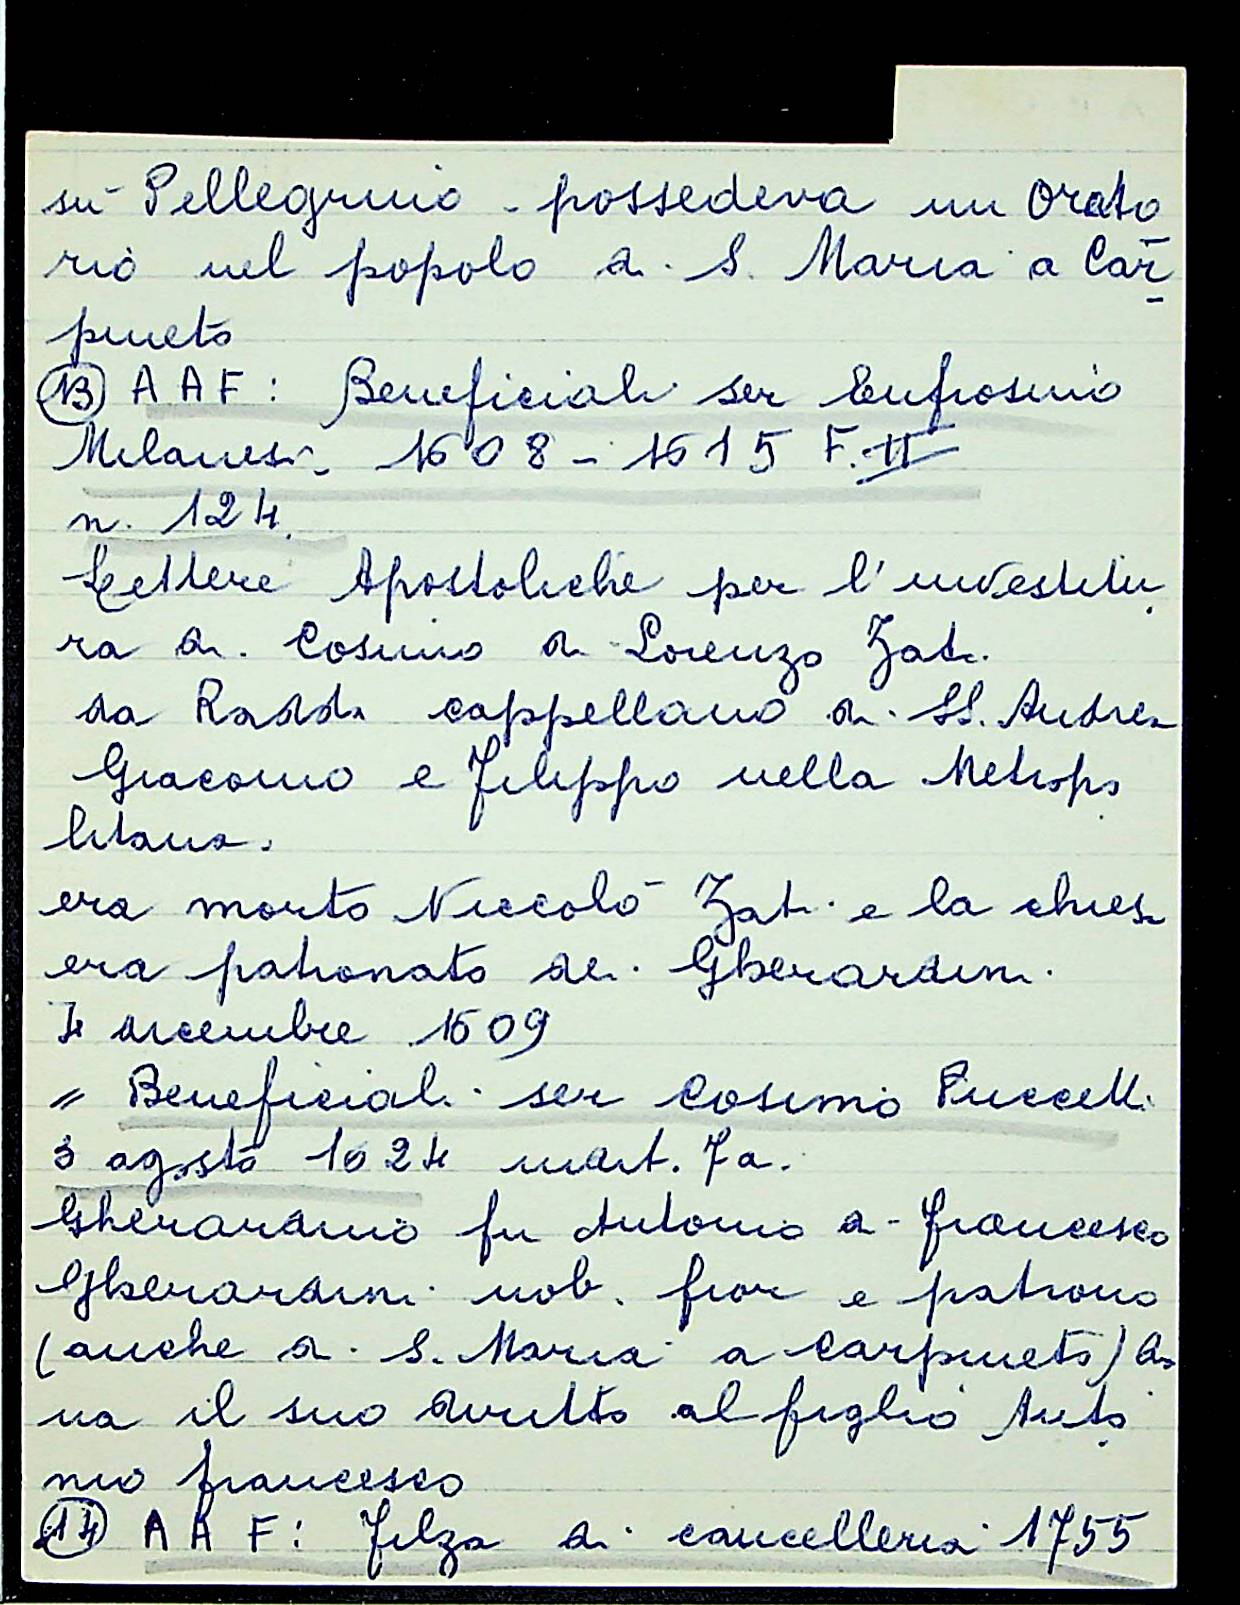 su Pellegrino - possedeva un Orato
rio nel popolo di S. Maria a Car
pineto
13 AAF: Beneficiali ser Eufrosino
Milanesi, 1608-1615 F. II
n. 124.
Lettere Apostoliche per l'investitu
ra di Cosimo di Lorenzo Zati
da Radda cappellano di SS. Andrea
Giacomo e Filippo nella Metropo
litana.
era morto Niccolò Zati e la chiesa
era patronato dei Gherardini.
4 dicembre 1609
" Beneficiali ser Cosimo Puccetti
3 agosto 1624
Gherardino fu Antonio di Francesco
Gherardini nob. fior e patrono
(anche di S. Maria a Carpineto) do
na il suo diritto al figlio Anto
nio francesco
14 AAF: Filza di cancelleria 1755